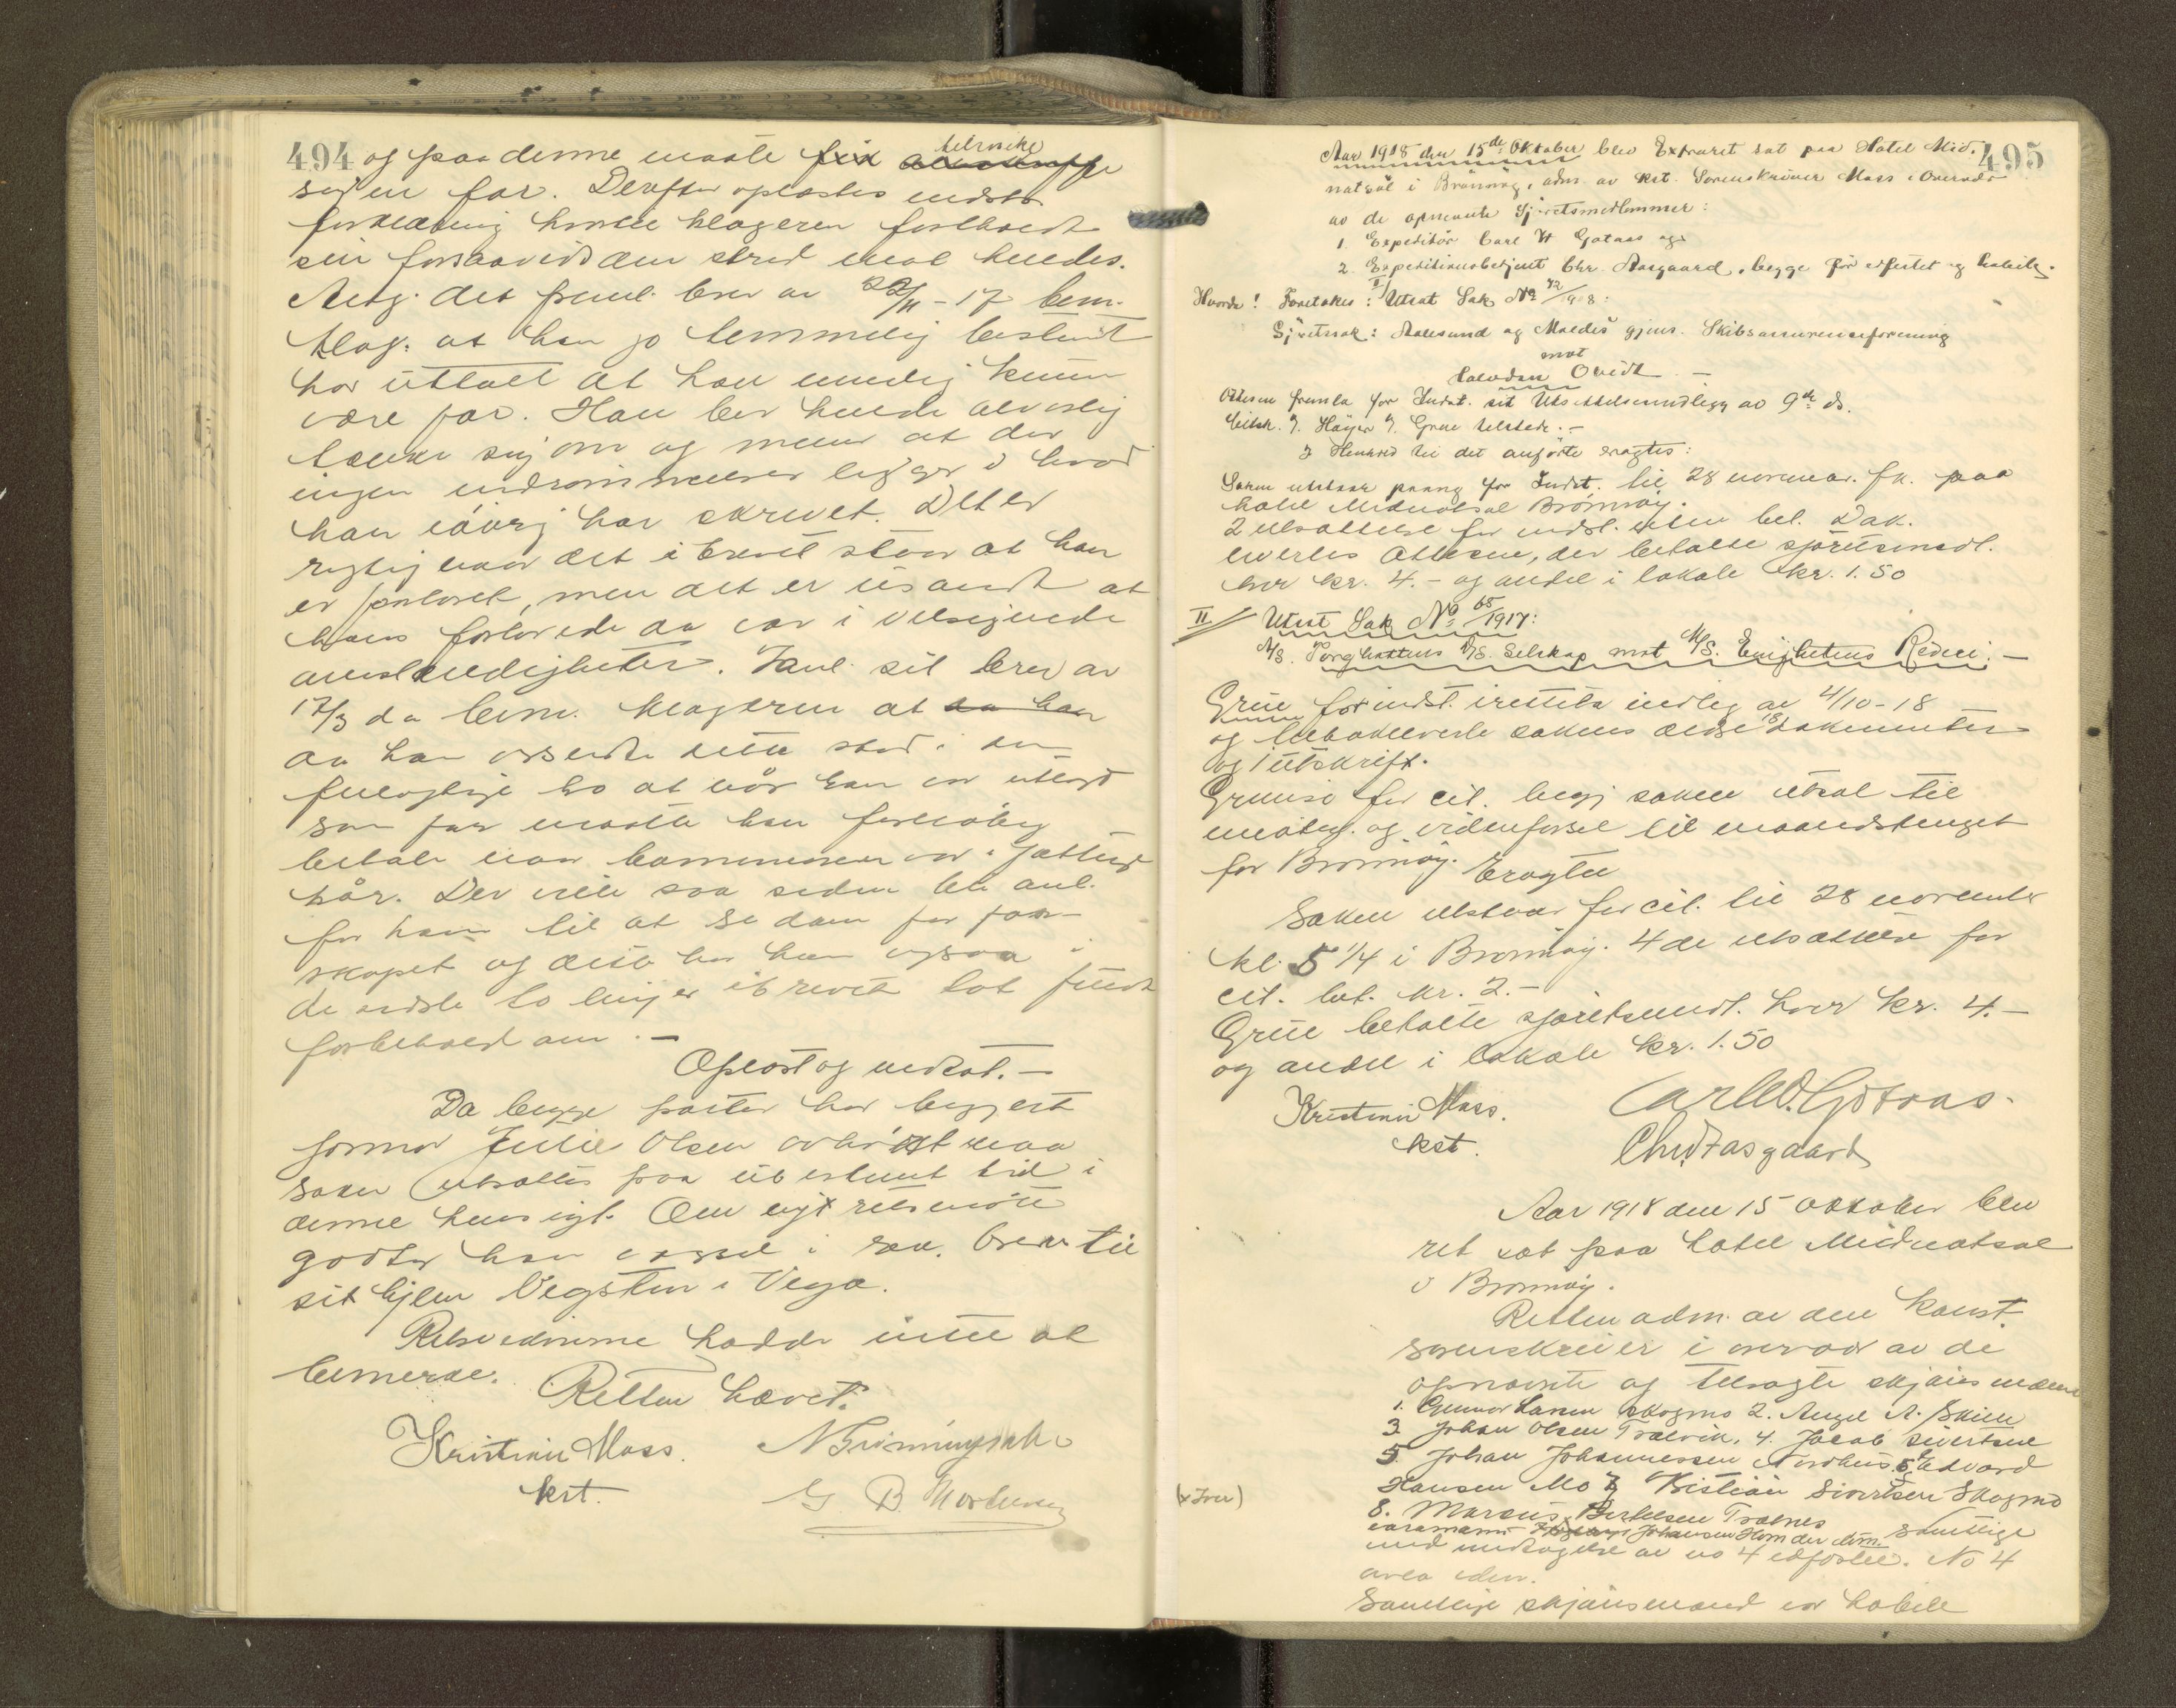 494 og paa denne maate tilvirke
sig en far. Derefter oplæstes indst.
forklaring hvorefter klageren fastholdt
sin forsaavidt den stred mot hendes.
Ang. det freml. brev av 22/11-17 bem.
klag. at han jo temmelig bestemt
har uttalt at han umulig kunne
være far. Han bev hende alvorlig
tænke sig om og mener at der
ingen indrømmelser ligger i hvad
han iøvrig har skrevet. Det er
rigtig naar det i brevet staar at han
er forlovet, men det er usandt at
hans forlovede da var i velsignede
omstændigheter. Fanl. sit brev av
17/3 da bem. klageren at da han
da han avsendte dette stod i den
formening at naar han var utlagt
som far maatte han forløbig
betale naar kommunen
kår. Der vilde saa siden bli anl.
for ham til at se dom for far-
skapet og dette har han ogsaa i
de sidste to linjer i brevet tat
forbehold om. —
Oplæst og vedtat. —
Da begge parter har begjært
jormor Julie Olsen avhørt maa
saken utsættes paa ubestemt tid i
denne hensigt. Om nyt retsmøte
godtar han varsel i rek. brev til
sit hjem Vegsten i Vega.
Retsvidnerne hadde intet at
bemerke.
Retten hævet.
Kristian Mass.
kst.
G. B. Mortensen
495
Aar 1918 den 15de Oktober blev Extraret sat paa Hotel Mid.
natsol i Brønnøy, adm. av kst. Sorenskriver Mass i Overvær
av de opnævnte Sjøretsmedlemmer:
1. Expeditør Carl W Gotaas og
2. Expeditionsbetjent Chr. Aasgaard, begge før edfestet og habile.
Hvorda! Foretokes: I/ Utsat Sak No 72/1918:
Sjøretssak: Aalesund og Moldes gjens. Skibsassuranceforening
mot
Halvdan Qvidt —
Ottesen fremla for Indst. sit Utsettelsesindlegg av 9de ds.
Citsk. v. Høyer v. Grue tilstede. —
I Henhold til det anførte eragtes:
Saken utstaar paany for Indst. til 28 november. fk. paa
hotel Midnatsol Brønnøy.
2 utsættelse for indst. uten bet. Dok.
leverles Ottesen, der betalte sjøretsmedl.
hver kr. 4.- og andel i lokale kr. 1.50
II/ Utsat Sak No 65/1917:
A/S. Torghattens D/S. Selskap mot M/S. Enighetens Rederi. —
Grue for indst. irettela indleg av 4/10-18
og tilbakeleverte sakens ældre 18 dokumenter
og 1 utskrift.
Grue for cit. begj saken utsat til
imøteg. og vidneførsel til maandstinget
for Brønnøy. Eragtet
Saken utstaar for cit. til 28 november
kl. 5 1/4 i Brønnøy. 4de utsættelse for
cit. bet. kr. 2.-
Grue betalte sjøretsmedl. hver kr. 4.-
og andel i lokale kr. 1.50
Kristian Mass.
kst.
Carl W. Gotaas.
Chr. Aasgaard
Aar 1918 den 15 oktober blev
ret sat paa hotel Midnatsol
i Brønnøy.
Retten adm. av den konst.
sorenskriver i overvær av de
opnævnte og tilsagte skjønsmænd
1. Gunnar Larsen Skogmo 2. Angel A. Skille
3 Johan Olsen Trælvik, 4. Jakob Sivertsen
5. Johan Johannessen Nordhus 6. Edvard
Hansen Mo 7 Kristian Sivertsen Skogmo
(x Iver)
8. Marcus Bertelsen Trælnes
varamann Johansen Horn der dom. samtlige
med undtagelse av no 4 edfæstet. No 4
avla eden.
Samtlige skjønsmænd var habile